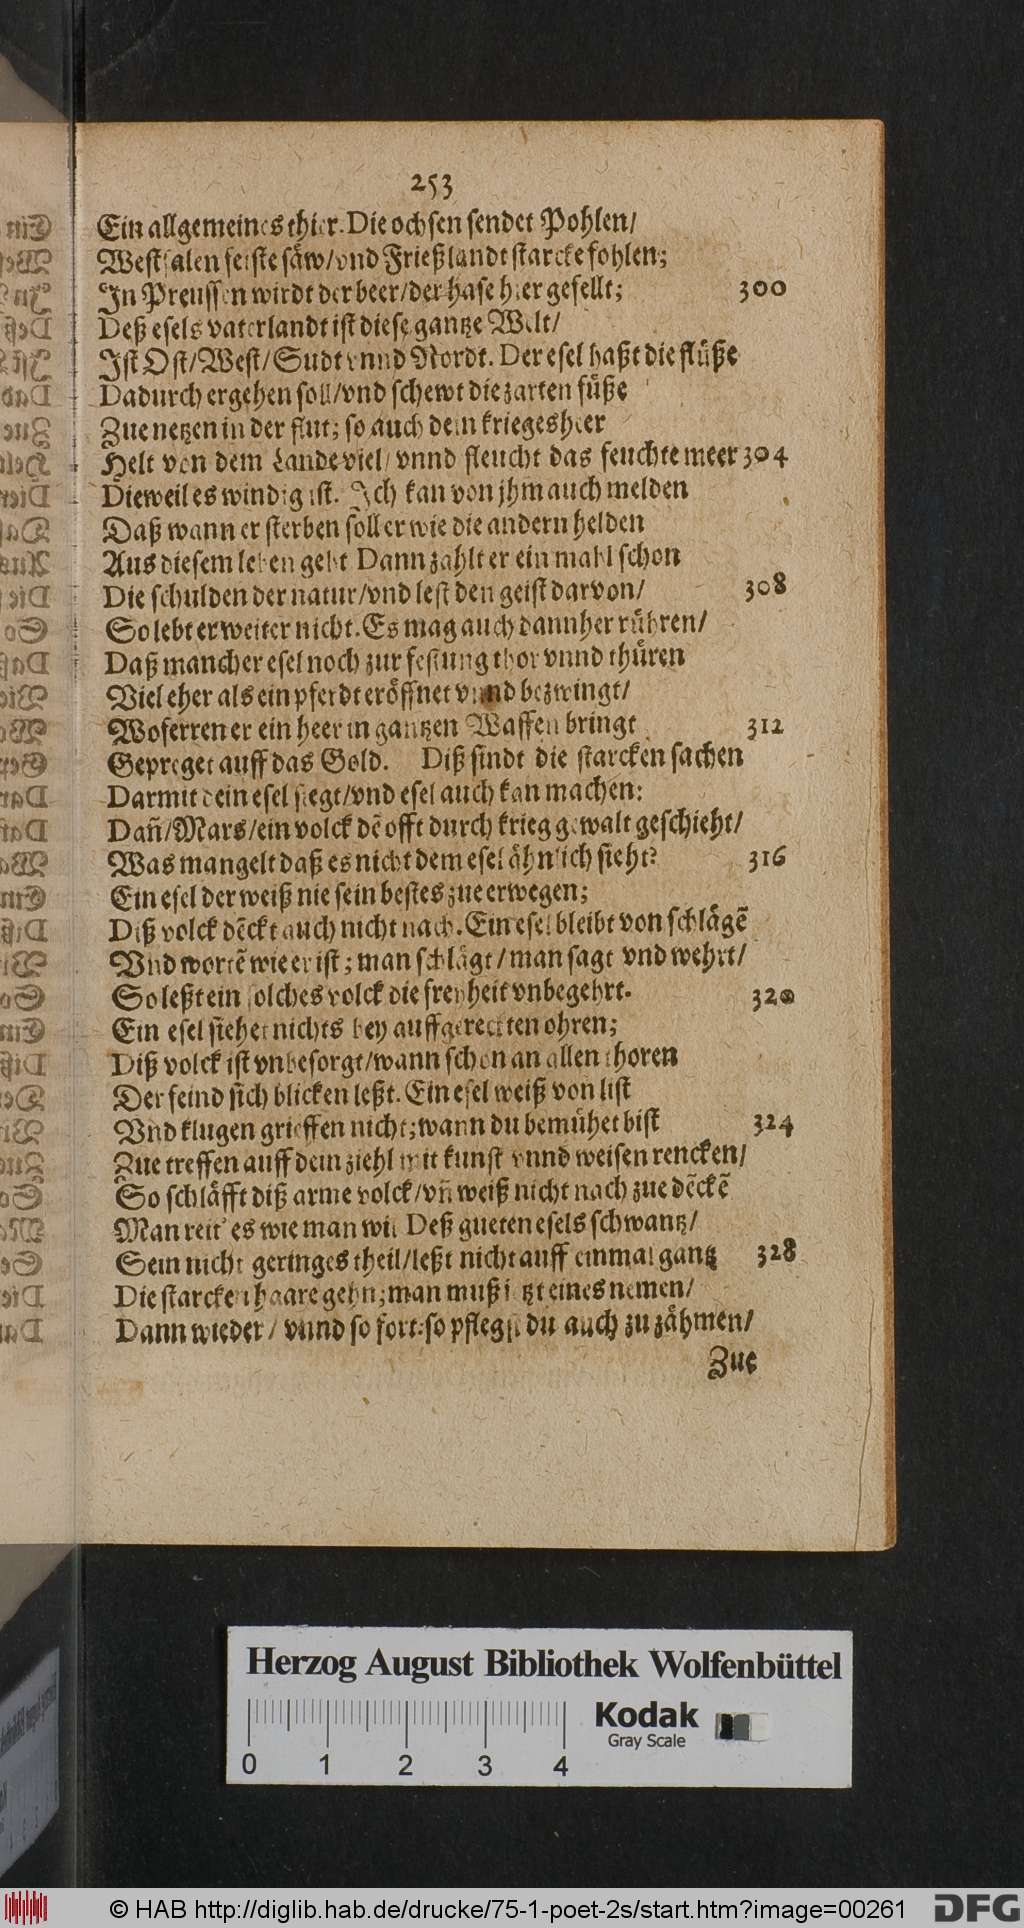 253
Ein allgemeines thier. Die ochsen sendet Pohlen/
Westfalen feiste säw/vnd Frießlandt starcke fohlen;
In Preussen wirdt der beer/der hase hier gefellt; 300
Deß esels vaterlandt ist diese gantze Welt/
Ist Ost/West/Sudt vnnd Nordt. Der esel haßt die flüße
Dadurch er gehen soll/vnd schewt die zarten füße
Zue netzen in der flut; so auch dein krieges heer
Helt von dem Lande viel/ vnnd fleucht das feuchte meer 304
Dieweil es windig ist. Ich kan von jhm auch melden
Daß wann er sterben soll er wie die andern helden
Aus diesem leben geht Dann zahlt er ein mahl schon
Die schulden der natur/vnd lest den geist darvon/ 308
So lebt er weiter nicht. Es mag auch dannher rühren/
Daß mancher esel noch zur festung thor vnnd thüren
Viel eher als ein pferdt eröffnet vnnd bezwingt/
Woferren er ein heer in gantzen Waffen bringt 312
Gepreget auff das Gold. Diß sindt die starcken sachen
Darmit dein esel siegt/vnd esel auch kan machen:
Dañ/Mars/ein volck dē offt durch krieg gewalt geschieht/
Was mangelt daß es nicht dem esel ähnlich sieht? 316
Ein esel der weiß nie sein bestes zue erwegen;
Diß volck dēckt auch nicht nach. Ein esel bleibt von schlägē
Vnd wortē wie er ist; man schlägt/man sagt vnd wehrt/
So leßt ein solches volck die freyheit vnbegehrt. 320
Ein esel siehet nichts bey auffgereckten ohren;
Diß volck ist vnbesorgt/wann schon an allen thoren
Der feind sich blicken leßt. Ein esel weiß von list
Vnd klugen grieffen nicht; wann du bemühet bist 324
Zue treffen auff dein ziehl mit kunst vnnd weisen rencken/
So schläfft diß arme volck/vñ weiß nicht nach zue dēckē
Man reit es wie man wil Deß gueten esels schwantz/
Sein nicht geringes theil/leßt nicht auff einmal gantz 328
Die starcken haare gehn; man muß jetzt eines nemen/
Dann wieder/ vnnd so fort: so pflegst du auch zu zähmen/
Zue
Herzog August Bibliothek Wolfenbüttel
Kodak
Gray Scale
0 1 2 3 4
© HAB http://diglib.hab.de/drucke/75-1-poet-2s/start.htm?image=00261
DFG